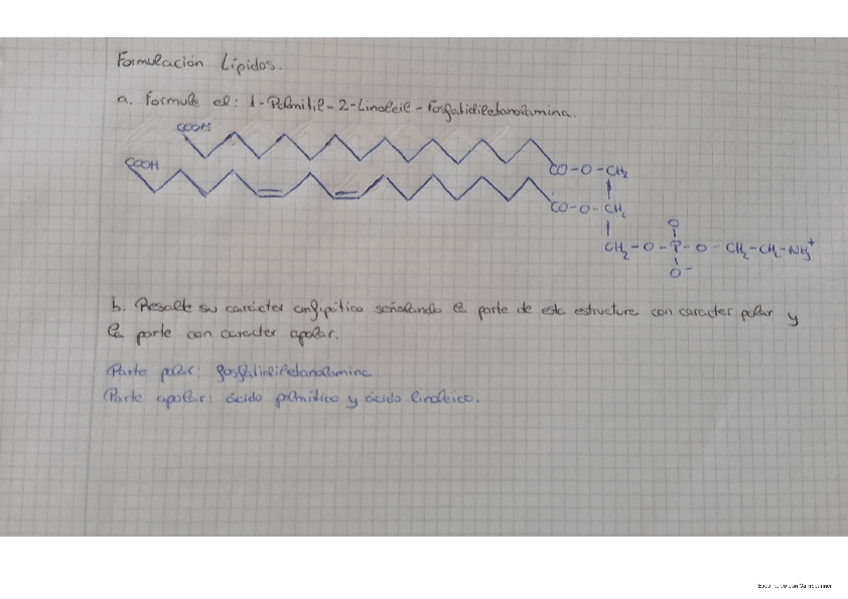 Formulación Lípidos.
a. Formule el: 1-Palmitil-2-Linoleil-Fosfatidiletanolamina.
COOH
COOH
CO-O-CH2
CO-O-CH2
O
CH2-O-P-O-CH2-CH2-NH3+
O-
b. Resalte su carácter anfipático señalando la parte de esta estructura con caracter polar y
la parte con caracter apolar.
Parte polar: fosfatidiletanolamina
Parte apolar: ácido palmítico y ácido linoleico.